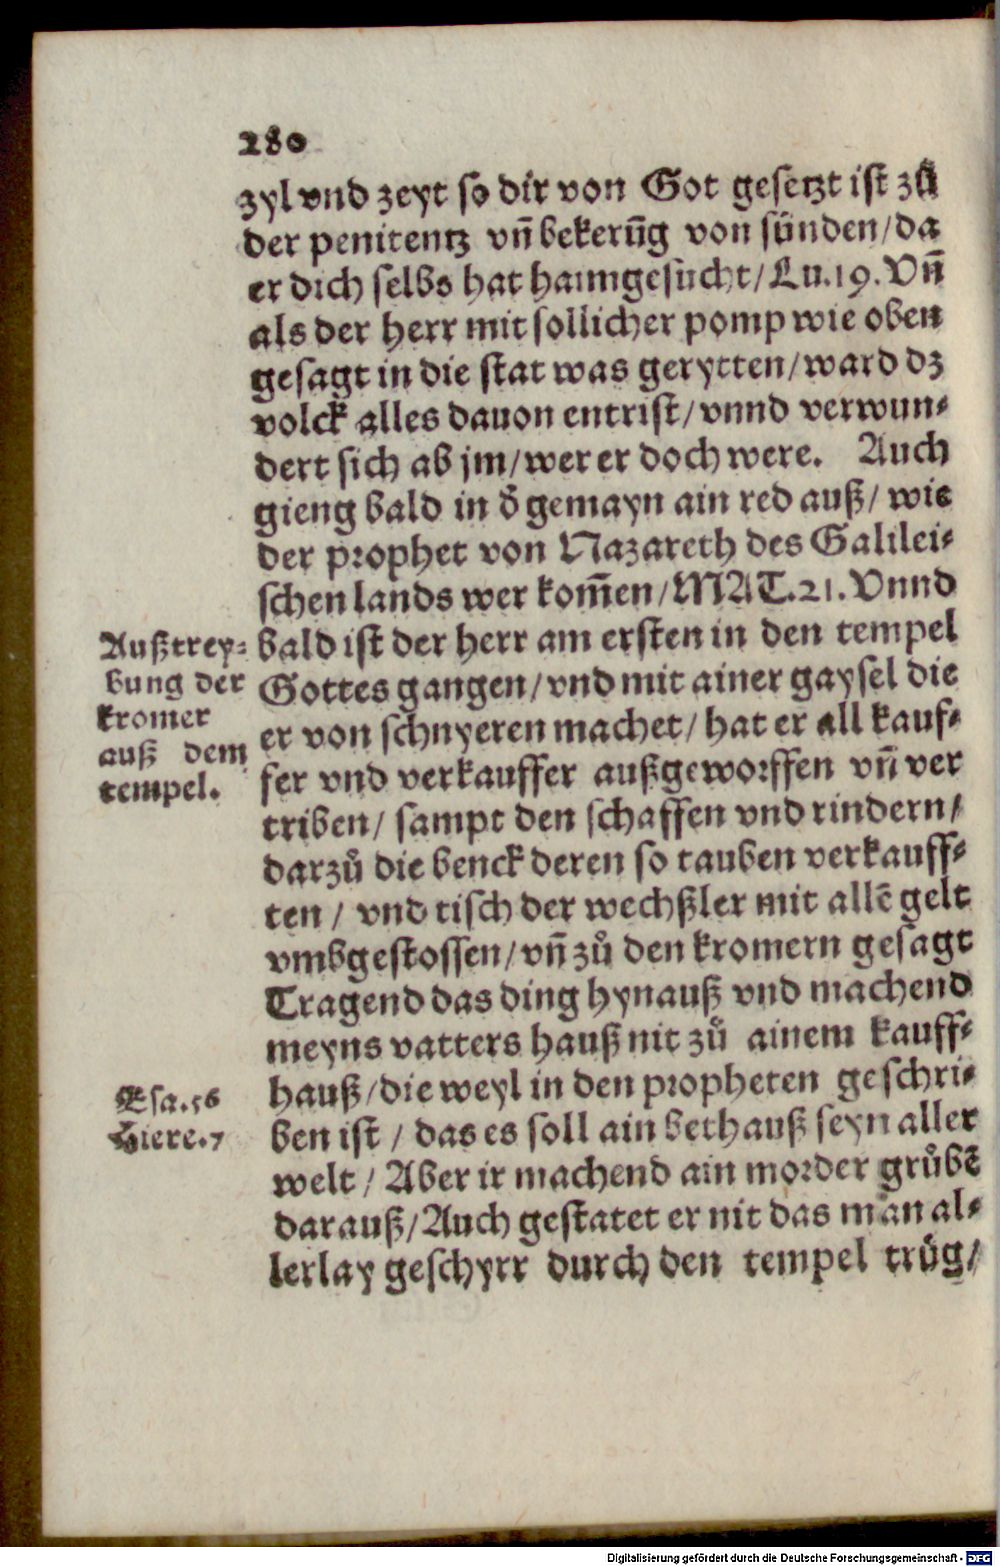 280
zyl vnd zeyt so dir von Got gesetzt ist zů
der penitentz vn̄ bekerūg von sünden/da
er dich selbs hat haimgesucht/Lu.19.Vn̄
als der herr mit sollicher pomp wie oben
gesagt in die stat was gerytten/ward dz
volck alles dauon entrist/vnnd verwun⸗
dert sich ab jm/wer er doch were. Auch
gieng bald in d̄ gemayn ain red auß/ wie
der prophet von Nazareth des Galilei⸗
schen lands wer kom̄en/MAT.21.Vnnd
Außtrey⸗
bung der
kromer
auß dem
tempel.
bald ist der herr am ersten in den tempel
Gottes gangen/vnd mit ainer gaysel die
er von schnyeren machet/hat er all kauf⸗
fer vnd verkauffer außgeworffen vn̄ ver
triben/ sampt den schaffen vnd rindern/
darzů die benck deren so tauben verkauff⸗
ten / vnd tisch der wechßler mit allē gelt
vmbgestossen/vn̄ zů den kromern gesagt
Tragend das ding hynauß vnd machend
meyns vatters hauß nit zů ainem kauff⸗
Esa.56
Hiere.7
hauß/die weyl in den propheten geschri⸗
ben ist / das es soll ain bethauß seyn aller
welt / Aber ir machend ain morder grůbē
darauß/Auch gestatet er nit das man al⸗
lerlay geschyrr durch den tempel trůg/
Digitalisierung gefördert durch die Deutsche Forschungsgemeinschaft - DFG